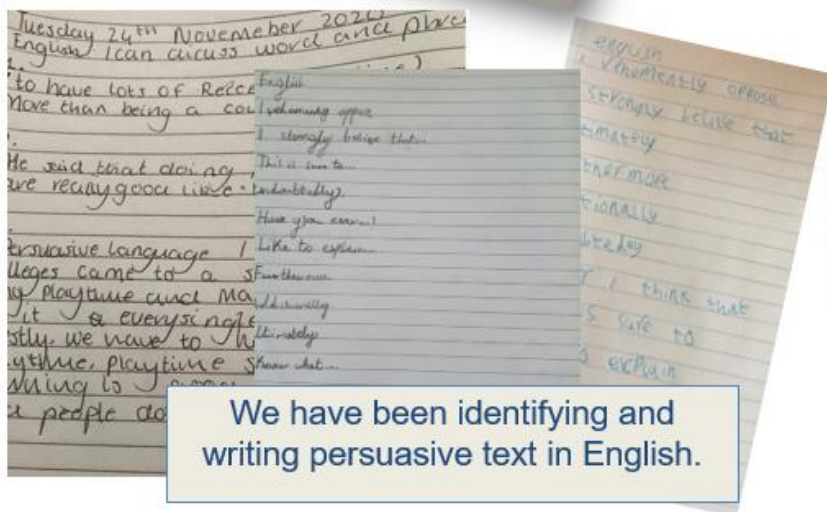 Tuesday 24th Novemeber 2020
English I can discuss word and phra
to have lots of Recce
More than being a cou
He said that doing
are really good like
Persuasive Language I
lleges came to a s
ng playtime and Ma
it a everysingle
stly, we have to h
ytime, playtime s
nning is
people do
English
I vehemently oppose
I strongly believe that...
This is sure to...
Undoubtedly,
Have you ever...?
Like to explain...
Furthermore
Additionally
Ultimately
Know what...
english
I vehemently oppose
strongly belive that
timately
thermore
tionally
btedley
I think that
s sure to
explain
We have been identifying and
writing persuasive text in English.